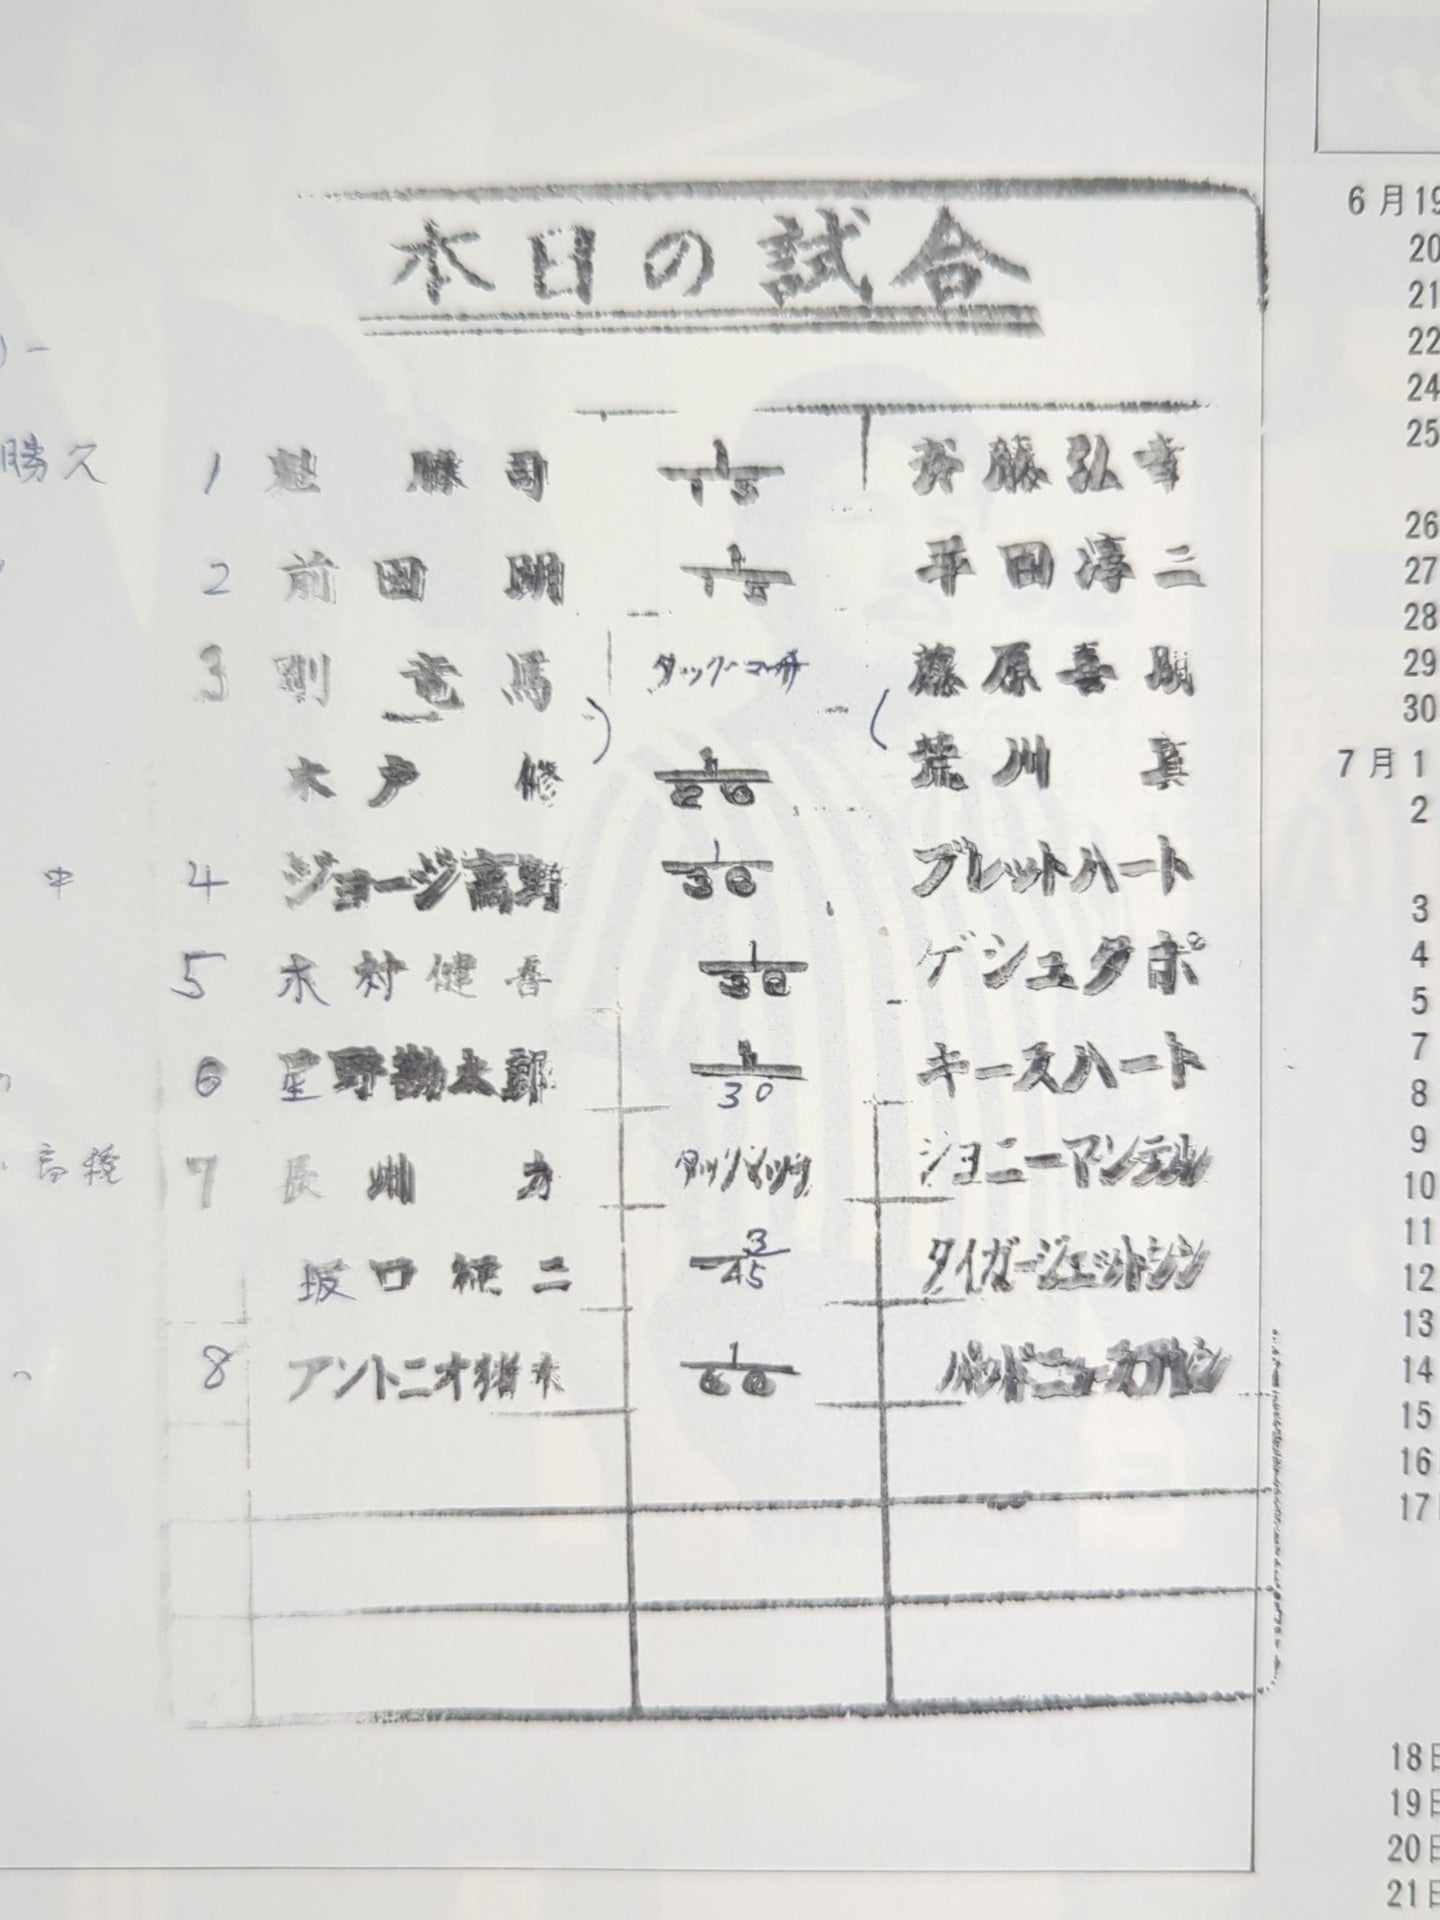 本日の試合
勝久
1 魁 勝司 1/15 斉藤弘幸
2 前田 明 1/15 平田淳二
3 剛 竜馬 タッグマッチ 藤原喜明
木戸 修 1/20 荒川 真
4 ジョージ高野 1/30 ブレットハート
5 木村健吾 1/30 ゲシュタポ
6 星野勘太郎 1/30 キースハート
高橋
7 長州 力 タッグマッチ ジョニーマンテル
坂口征二 3/45 タイガージェットシン
8 アントニオ猪木 1/60 バッドニュースアレン
6月19
20
21
22
24
25
26
27
28
29
30
7月1
2
3
4
5
7
8
9
10
11
12
13
14
15
16
17
18日
19日
20日
21日